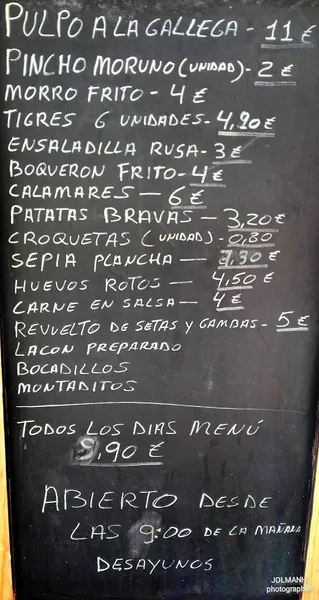 PULPO A LA GALLEGA - 11 €
PINCHO MORUNO (UNIDAD) - 2 €
MORRO FRITO - 4 €
TIGRES 6 UNIDADES - 4,90 €
ENSALADILLA RUSA - 3 €
BOQUERON FRITO - 4 €
CALAMARES — 6 €
PATATAS BRAVAS — 3,20 €
CROQUETAS (UNIDAD) - 0,80
SEPIA PLANCHA — 7,90 €
HUEVOS ROTOS — 4,50 €
CARNE EN SALSA — 4 €
REVUELTO DE SETAS Y GAMBAS - 5 €
LACON PREPARADO
BOCADILLOS
MONTADITOS
TODOS LOS DIAS MENÚ
9,90 €
ABIERTO DESDE
LAS 9:00 DE LA MAÑANA
DESAYUNOS
JOLMANH
photographer